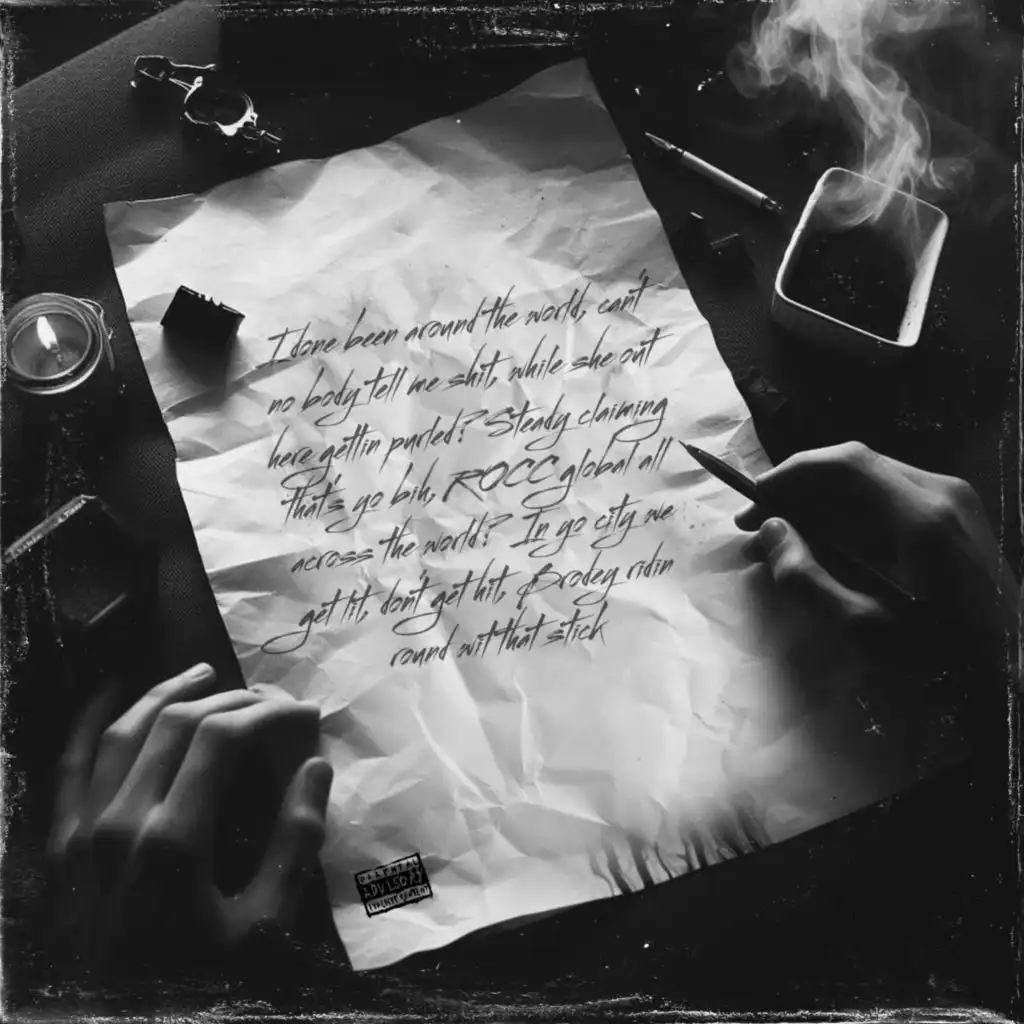 I done been around the world, can't
no body tell me shit, while she out
here gettin purled? Steady claiming
that's yo bih, ROCC global all
across the world? In yo city we
get lit, don't get hit, Brodey ridin
round wit that stick
PARENTAL
ADVISORY
EXPLICIT CONTENT